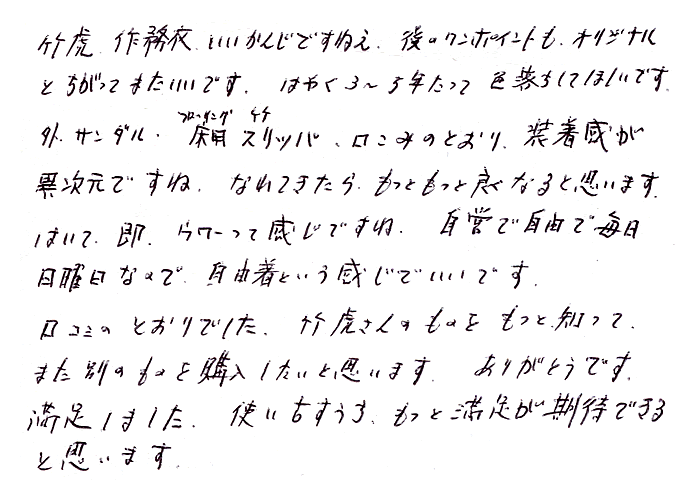 竹虎 作務衣、いいかんじですねえ、後のワンポイントも、オリジナル
とちがってまたいいです。 はやく3〜5年たって 色落ちしてほしいです。
外、サンダル・フローリング 床用 竹 スリッパ、口こみのとおり、装着感が
異次元ですね、なれてきたら、もっともっと良くなると思います。
はいて、即、ウワーって感じですね、自営で自由で毎日
日曜日なので、自由着という感じでいいです。
口コミのとおりでした、竹虎さんのものをもっと知って、
また別のものを購入したいと思います。ありがとうです。
満足しました、使い古すうち、もっと満足が期待できる
と思います。